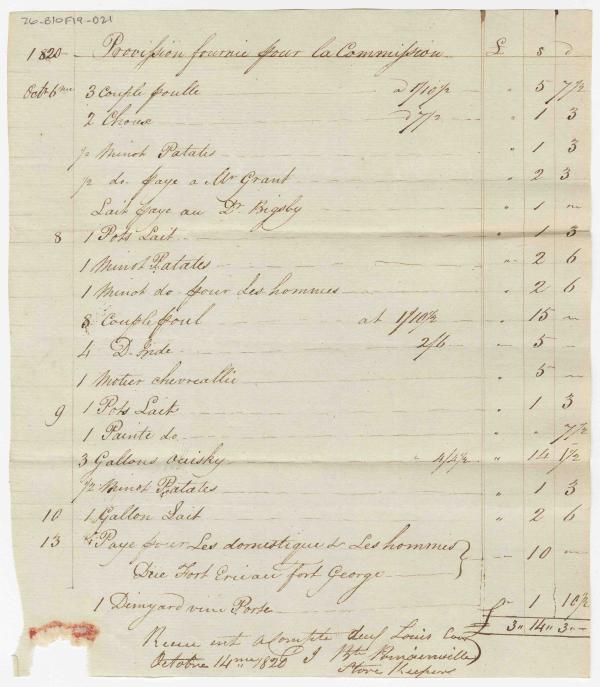 76-B10F19-021
1820 Provission fournie pour la Commission £ s d
Octr 6me 3 Couple poulle a 1/10½ " 5 7½
2 Choux a 7½ " 1 3
½ Minot Patates " 1 3
½ do paye a Mr Grant " 2 3
Lait paye au Dr Bigsby " 1 —
8 1 Pots Lait " 1 3
1 Minot Patates " 2 6
1 Minot do pour Les hommes " 2 6
8 Couple poul at 1/10½ " 15 —
4 D. Inde 2/6 — 5 —
1 Motier chevreallie " 5 —
9 1 Pots Lait " 1 3
1 Painte do " " 7½
3 Gallons ouisky " 4/4½ " 14 1½
½ Minot Patates " 1 3
10 1 Gallon Lait " 2 6
13 Paye pour Les domestique & Les hommes — 10 —
Due Fort Erie au fort George
1 Demyard vin Porte " 1 10½
£ 3 " 14 " 3 " —
Receu ent acompte Louis
Octobre 14me 1820 J Bte Romainville
Store Keeper